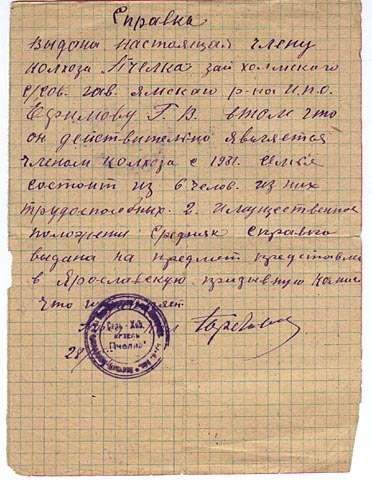 Справка
выдана настоящая члену
колхоза Пчелка зай холмского
с/сов. гав. ямскаго р-на И.п.о.
Ефимову Г. В. втом что
он действительно является
членом колхоза с 1931. семья
состоит из 6 челов. из них
трудоспособных. 2. Имущественное
положения Средняк Справка
выдана на предмет представле
в Ярославскую призывную
что
Сель-Хоз.
артель
"Пчелка"
28